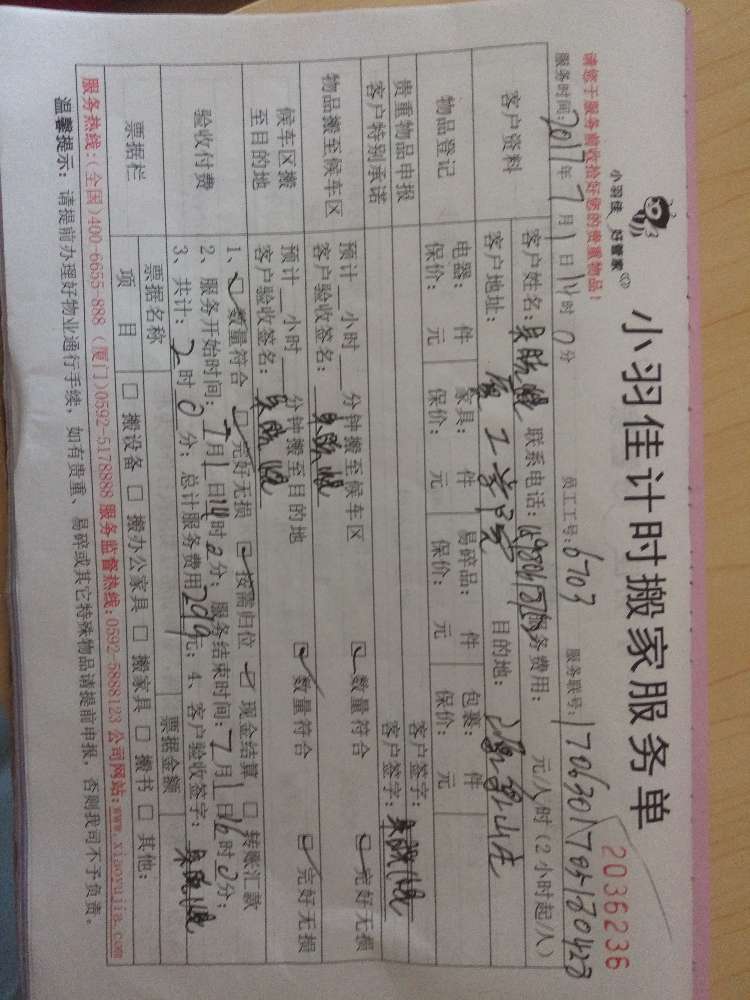 小羽佳 好管家
小羽佳计时搬家服务单
2036236
请您于服务前收拾好您的贵重物品！
服务时间：2017年7月1日14时0分 员工工号：6703 服务联号：
客户资料
客户姓名： 联系电话： 服务费用： 元/人/时（2小时起/人）
客户地址： 目的地：
物品登记
电器： 件 家具： 件 易碎品： 件 包裹： 件
保价： 元 保价： 元 保价： 元 保价： 元
贵重物品申报 客户签字：
客户特别承诺 客户签字：
物品搬至候车区
预计 小时 分钟搬至候车区 数量符合 完好无损
客户验收签名：
候车区搬至目的地
预计 小时 分钟搬至目的地 数量符合 完好无损
客户验收签名：
验收付费
1、 数量符合 完好无损 按需归位 现金结算 转账汇款
2、服务开始时间：7月1日14时0分；服务结束时间：7月1日16时0分；
3、共计：2时0分；总计服务费用 元；4、客户验收签字：
票据栏
票据名称 票据金额
项目 搬设备 搬办公家具 搬家具 搬书 其他：
服务热线：（全国）400-6655-888（厦门）0592-5178888 服务监督热线：0592-5898123 公司网站：www.xiaoyujia.com
温馨提示：请提前办理好物业通行手续，如有贵重、易碎或其它特殊物品请提前申报，否则我司不予负责。